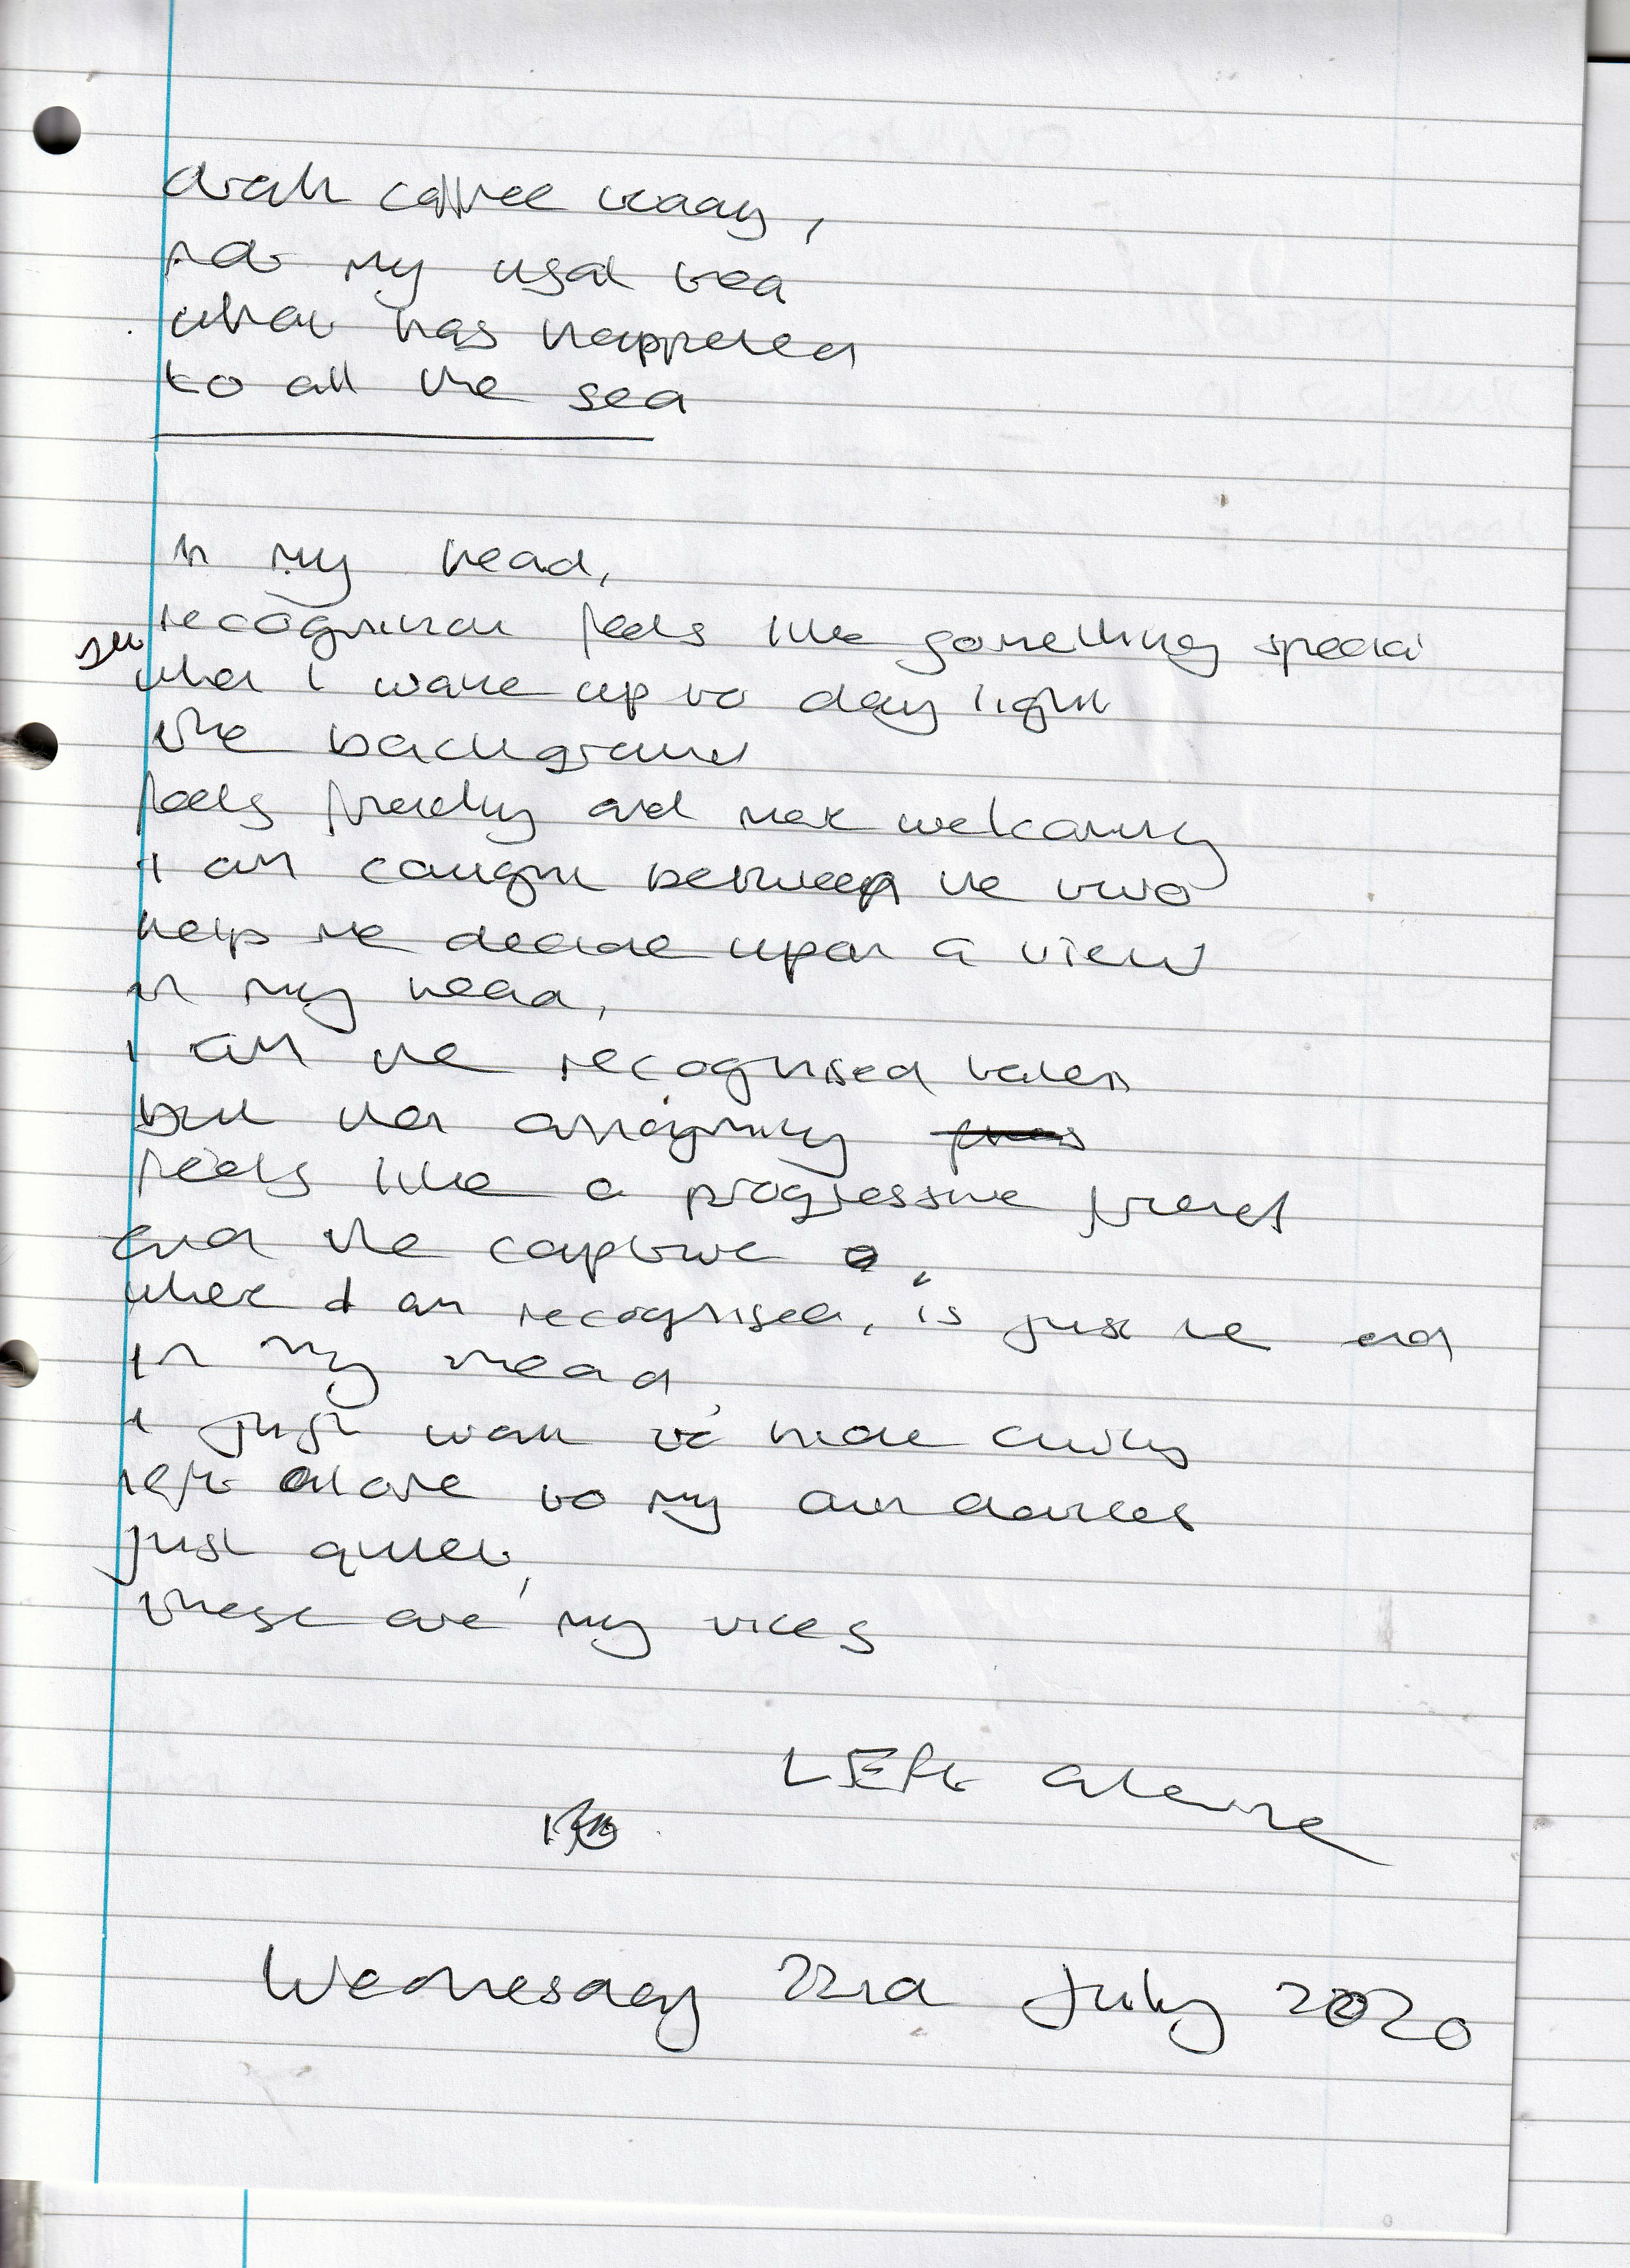 drank coffee today,
not my usal tea
what has happened
to all the sea
in my head,
recognition feels like something special
but
when i wake up to day light
the background
feels friendly and more welcoming
i am caught between the two
help me decide upon a view
in my head,
i am the recognised talent
but then anonymity
feels like a progressive friend
and the captive,
where I am recognised, is just the end
in my head,
i just want to hide away
left alone to my own devices
just quiet,
these are my vices
LEft alone
Wednesday 22nd July 2020